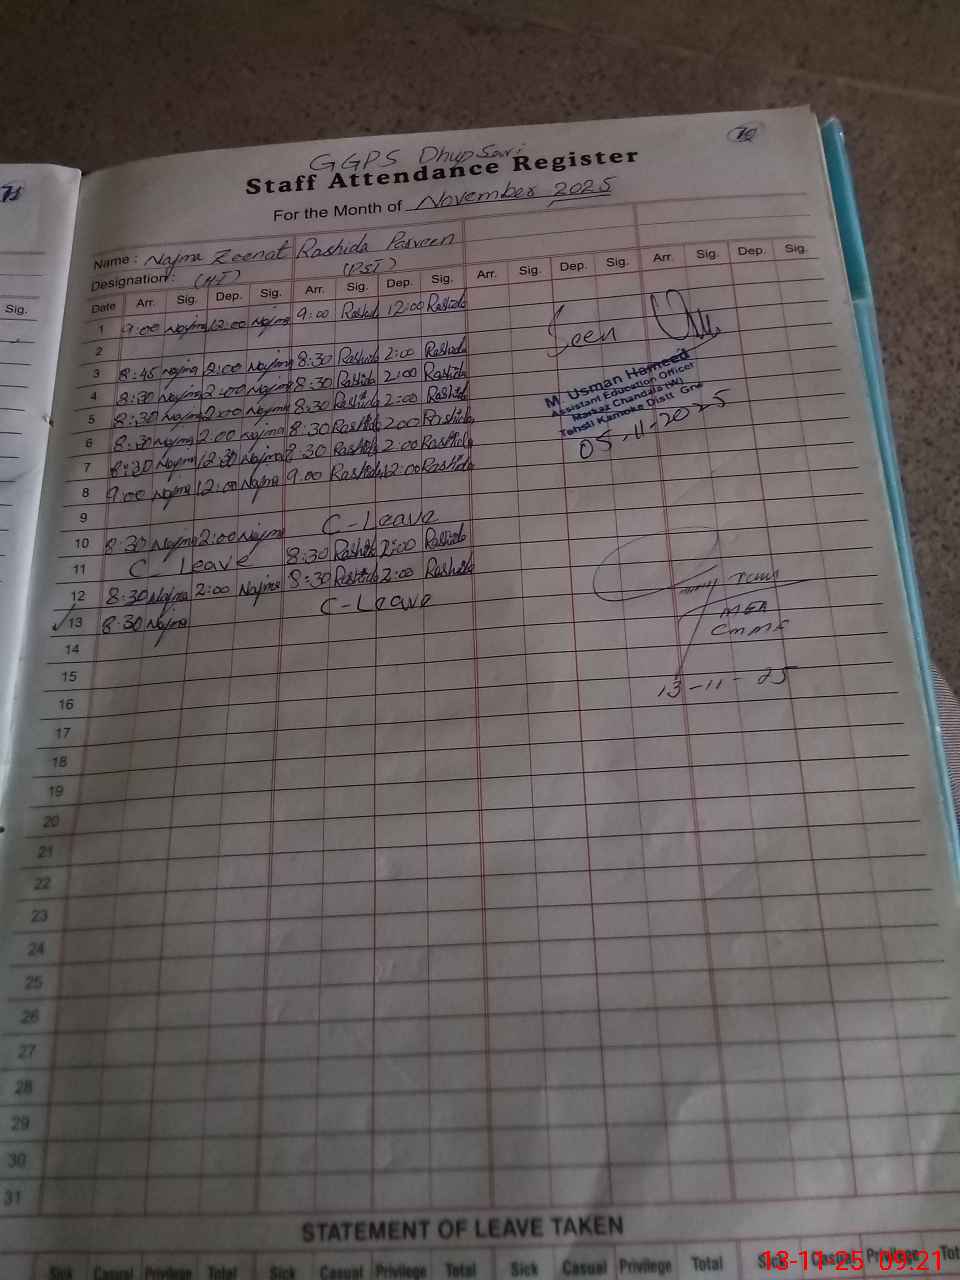 70
GGPS Dhupsari
Staff Attendance Register
For the Month of November 2025
Name: Najma Zeenat Rashida Parveen
Designation: (HT) (PST)
Sig.
Date Arr. Sig. Dep. Sig. Arr. Sig. Dep. Sig. Arr. Sig. Dep. Sig. Arr. Sig. Dep. Sig.
1 9:00 Najma 12:00 Najma 9:00 Rashid 12:00 Rashida
2
3 8:45 Najma 2:00 Najma 8:30 Rashida 2:00 Rashida
4 8:30 Najma 2:00 Najma 8:30 Rashida 2:00 Rashida
5 8:30 Najma 2:00 Najma 8:30 Rashida 2:00 Rashida
6 8:30 Najma 2:00 Najma 8:30 Rashida 2:00 Rashida
7 8:30 Najma 12:30 Najma 8:30 Rashida 2:00 Rashida
8 9:00 Najma 12:00 Najma 9:00 Rashida 12:00 Rashida
9
10 8:30 Najma 2:00 Najma C-Leave
11 C-Leave 8:30 Rashida 2:00 Rashida
12 8:30 Najma 2:00 Najma 8:30 Rashida 2:00 Rashida
13 8:30 Najma C-Leave
14
15
16
17
18
19
20
21
22
23
24
25
26
27
28
29
30
31
Seen
M. Usman Hameed
Assistant Education Officer
Markaz Chandala (W)
Tehsil Kamoke Distt Grw
05-11-2025
MEA
CMMF
13-11-25
STATEMENT OF LEAVE TAKEN
Sick Casual Privilege Total Sick Casual Privilege Total Sick Casual Privilege Total Sick Casual Privilege Tot
13-11-25 09:21